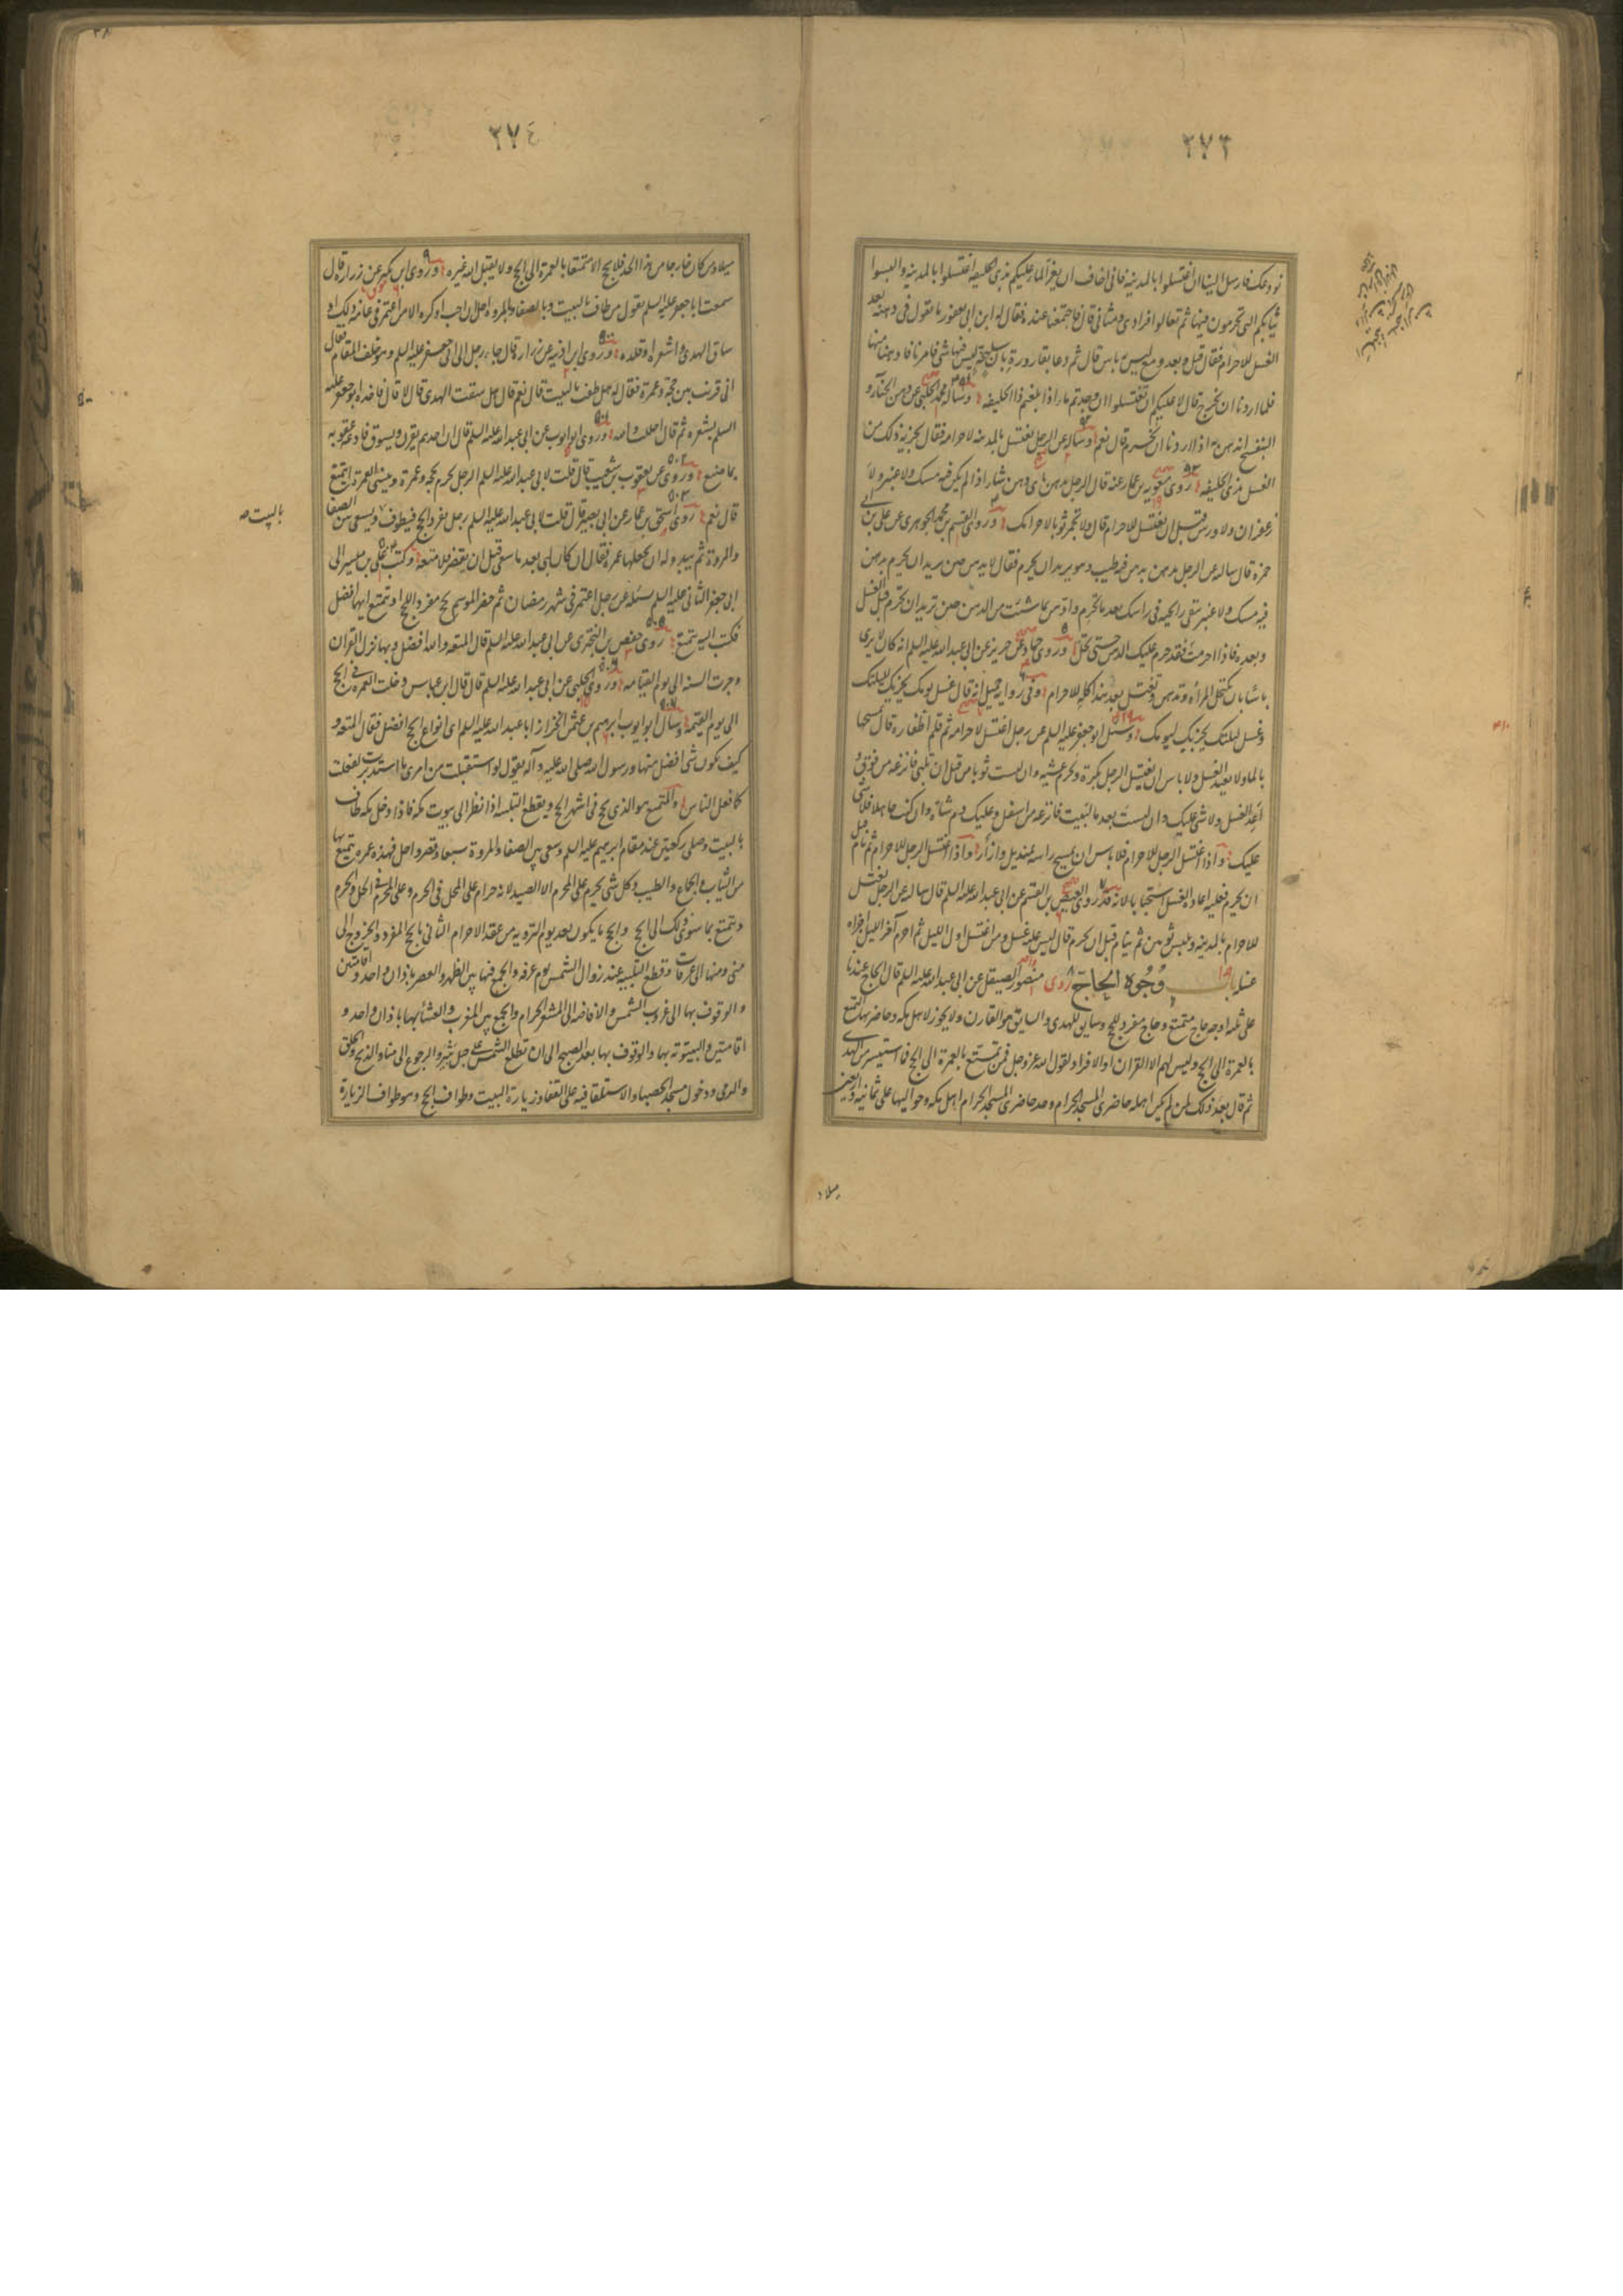 ٢٧٣
نودعك فارسل الينا ان اغتسلوا بالمدينة فانى اخاف ان يعز الماء عليكم بذى الحليفة اغتسلوا بالمدينة والبسوا
ثيابكم التى تحرمون فيها ثم تعالوا فرادى ومثانى قال فاجتمعنا عنده فقال له ابن ابى يعفور ما تقول فى دهنه بعد
الغسل للاحرام فقال قبل وبعد ومع ليس به باس قال ثم دعا بقارورة بان سليخة ليس فيها شى فامرنا فادهنا منها
فلما اردنا ان نخرج قال لا عليكم ان تغتسلوا ان وجدتم ماء اذا بلغتم ذا الحليفة وساله محمد الحلبى عن دهن الحناء و
البنفسج اندهن به اذا اردنا ان نحرم قال نعم وساله عن الرجل يغتسل بالمدينة لاحرامه فقال يجزيه ذلك من
الغسل بذى الحليفة روى معوية بن عمار عنه قال الرجل يدهن باى دهن شاء اذا لم يكن فيه مسك ولا عنبر ولا
زعفران ولا ورس قبل ان يغتسل للاحرام قال ولا تجمر ثوبا لاحرامك وروى القسم بن محمد الجوهرى عن على بن ابى
حمزة قال سالته عن الرجل يدهن بدهن فيه طيب وهو يريد ان يحرم فقال لا يدهن حين يريد ان يحرم بدهن
فيه مسك ولا عنبر تبقى رائحته فى راسك بعد ما تحرم وادهن بما شئت من الدهن حين تريد ان تحرم قبل الغسل
وبعده فاذا احرمت فقد حرم عليك الدهن حتى تحل وروى حماد عن حريز عن ابى عبد الله عليه السلم انه كان لا يرى
باسا بان تكتحل المرأة وتدهن وتغتسل بعد هذا كله للاحرام وفى رواية جميل انه قال غسل يومك يجزيك لليلتك
وغسل ليلتك يجزيك ليومك وسئل ابو جعفر عليه السلم عن رجل اغتسل لاحرامه ثم قلم اظفاره قال يمسحها
بالماء ولا يعيد الغسل ولا باس ان يغتسل الرجل بكرة ويحرم عشية وان لبست ثوبا من قبل ان تلبى فانزعه من فوق و
اعد الغسل ولا شى عليك وان لبست بعد ما لبيت فانزعه من اسفل وعليك دم شاة وان كنت جاهلا فلا شى
عليك واذا اغتسل الرجل للاحرام فلا باس ان يمسح راسه بمنديل واذا اغتسل الرجل للاحرام ثم نام قبل
ان يحرم فعليه اعادة الغسل استحبابا لانه قد روى العيص بن القسم عن ابى عبد الله عليه السلم قال سالته عن الرجل يغتسل
للاحرام بالمدينة ويلبس ثوبين ثم ينام قبل ان يحرم قال ليس عليه غسل ومن اغتسل اول الليل ثم احرم آخر الليل اجزاه
غسله باب وجوه الحاج روى منصور الصيقل عن ابى عبد الله عليه السلم قال الحاج عندنا
على ثلثة اوجه حاج متمتع وحاج مفرد للحج وسايق للهدى والسايق هو القارن ولا يجوز لاهل مكة وحاضريها التمتع
بالعمرة الى الحج وليس لهم الا القران او الافراد لقول الله عز وجل فمن تمتع بالعمرة الى الحج فما استيسر من الهدى
ثم قال بعد ذلك لمن لم يكن اهله حاضرى المسجد الحرام وحد حاضرى المسجد الحرام اهل مكة وحواليها على ثمانية واربعين
ميلا و
٢٧٤
ميلا ومن كان خارجا من هذا الحد فلا يحج الا متمتعا بالعمرة الى الحج ولا يقبل الله غيره وروى ابن بكير عن زرارة قال
سمعت ابا جعفر عليه السلم يقول من طاف بالبيت وبالصفا والمروة احل ان احب او كره الا من اعتمر فى عامه ذلك او
ساق الهدى واشعره وقلده وروى ابن اذينة عن زرارة قال جاء رجل الى ابى جعفر عليه السلم وهو خلف المقام فقال
انى قرنت بين حجة وعمرة فقال له هل طفت بالبيت قال نعم قال هل سقت الهدى قال لا قال فاخذ ابو جعفر عليه
السلم بشعره ثم قال احللت والله وروى ابو ايوب عن ابى عبد الله عليه السلم قال ان احدهم يقرن ويسوق فادعه عقوبة
بما صنع وروى عن يعقوب بن شعيب قال قلت لابى عبد الله عليه السلم الرجل يحرم بحجة وعمرة وينشى العمرة ايتمتع
قال نعم روى اسحق بن عمار عن ابى بصير قال قلت لابى عبد الله عليه السلم رجل يفرد الحج فيطوف ويسعى بين الصفا
بالبيت صح
والمروة ثم يبدو له ان يجعلها عمرة فقال ان كان لبى بعد ما سعى قبل ان يقصر فلا متعة له وكتب على بن ميسر الى
ابى جعفر الثانى عليه السلم يسئله عن رجل اعتمر فى شهر رمضان ثم حضر الموسم يحج مفردا للحج او يتمتع ايهما افضل
فكتب اليه يتمتع روى حفص بن البخترى عن ابى عبد الله عليه السلم قال المتعة والله افضل وبها نزل القران
وجرت السنة الى يوم القيامة وروى الحلبى عن ابى عبد الله عليه السلم قال قال ابن عباس دخلت العمرة فى الحج
الى يوم القيمة وسال ابو ايوب ابرهيم بن عثمن الخزاز ابا عبد الله عليه السلم اى انواع الحج افضل فقال المتعة و
كيف يكون شى افضل منها ورسول الله صلى الله عليه وآله يقول لو استقبلت من امرى ما استدبرت لفعلت
كما فعل الناس والمتمتع هو الذى يحج فى اشهر الحج ويقطع التلبية اذا نظر الى بيوت مكة فاذا دخل مكة طاف
بالبيت وصلى ركعتين عند مقام ابرهيم عليه السلم وسعى بين الصفا والمروة سبعا وقصر واحل فهذه عمرة يتمتع بها
من الثياب والجماع والطيب وكل شى يحرم على المحرم الا الصيد لانه حرام على المحل فى الحرم وعلى المحرم فى الحل والحرم
ويتمتع بما سوى ذلك الى الحج والحج ما يكون بعد يوم التروية من عقد الاحرام الثانى بالحج المفرد والخروج الى
منى ومنها الى عرفات وقطع التلبية عند زوال الشمس يوم عرفة والجمع فيها بين الظهر والعصر باذان واحد واقامتين
والوقوف بها الى غروب الشمس والافاضة الى المشعر الحرام والجمع بين المغرب والعشاء بها باذان واحد و
اقامتين والبيتوتة بها والوقوف بها بعد الصبح الى ان تطلع الشمس على جبل ثبير والرجوع الى منا والذبح والحلق
والرمى ودخول مسجد الحصباء والاستلقاء فيه على القفا وزيارة البيت وطواف الحج وهو طواف الزيارة